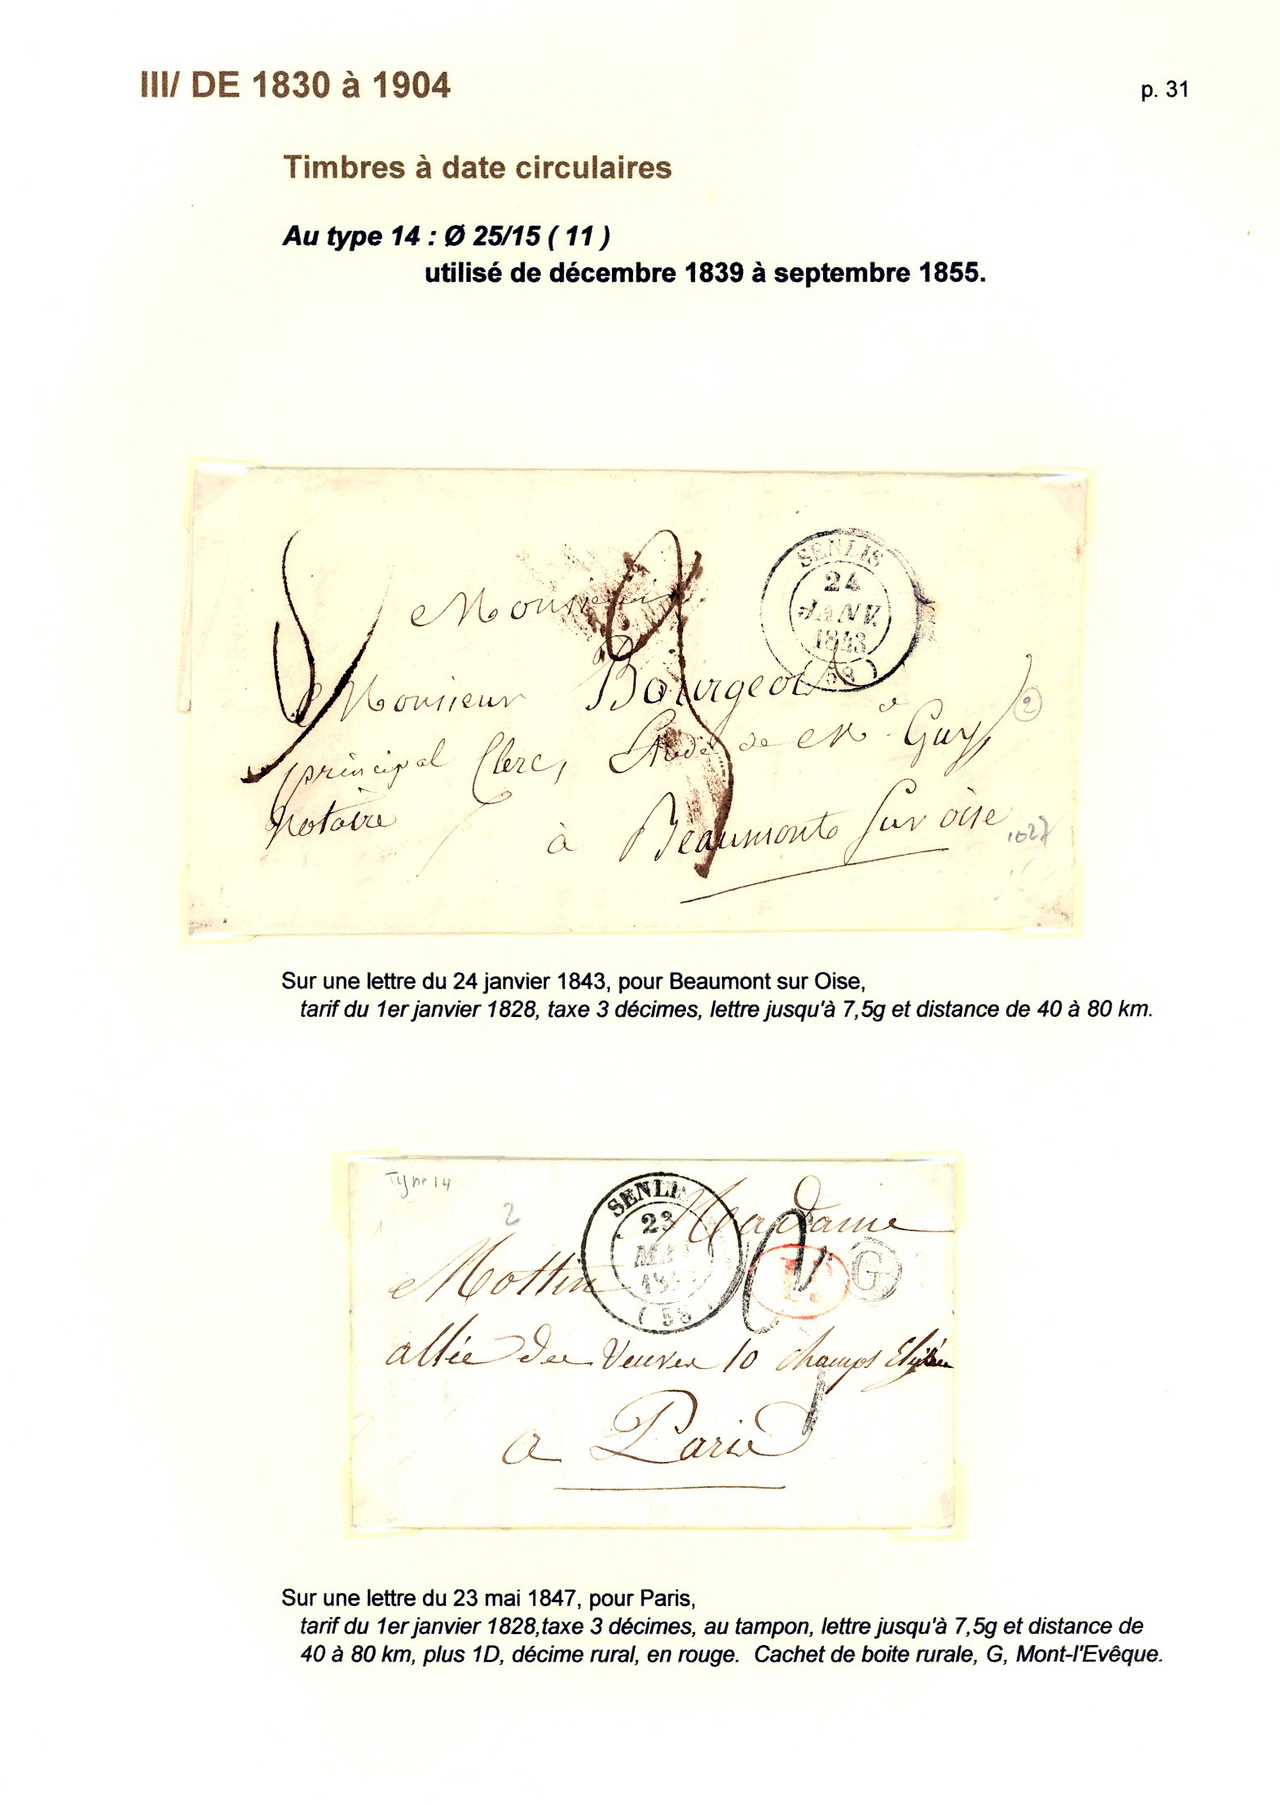 III/ DE 1830 à 1904
p. 31
Timbres à date circulaires
Au type 14 : Ø 25/15 ( 11 )
utilisé de décembre 1839 à septembre 1855.
SENLIS
24
JANV.
1843
(58)
Monsieur
Monsieur Bourgeois
principal Clerc, Etude de Me Guy,
notaire
à Beaumont sur oise
2
1027
Sur une lettre du 24 janvier 1843, pour Beaumont sur Oise,
tarif du 1er janvier 1828, taxe 3 décimes, lettre jusqu'à 7,5g et distance de 40 à 80 km.
Type 14
2
SENLIS
23
MAI
(58)
G
Madame
Mottin
allée des Veuves 10 champs Elysées
a Paris
Sur une lettre du 23 mai 1847, pour Paris,
tarif du 1er janvier 1828,taxe 3 décimes, au tampon, lettre jusqu'à 7,5g et distance de
40 à 80 km, plus 1D, décime rural, en rouge. Cachet de boite rurale, G, Mont-l'Evêque.